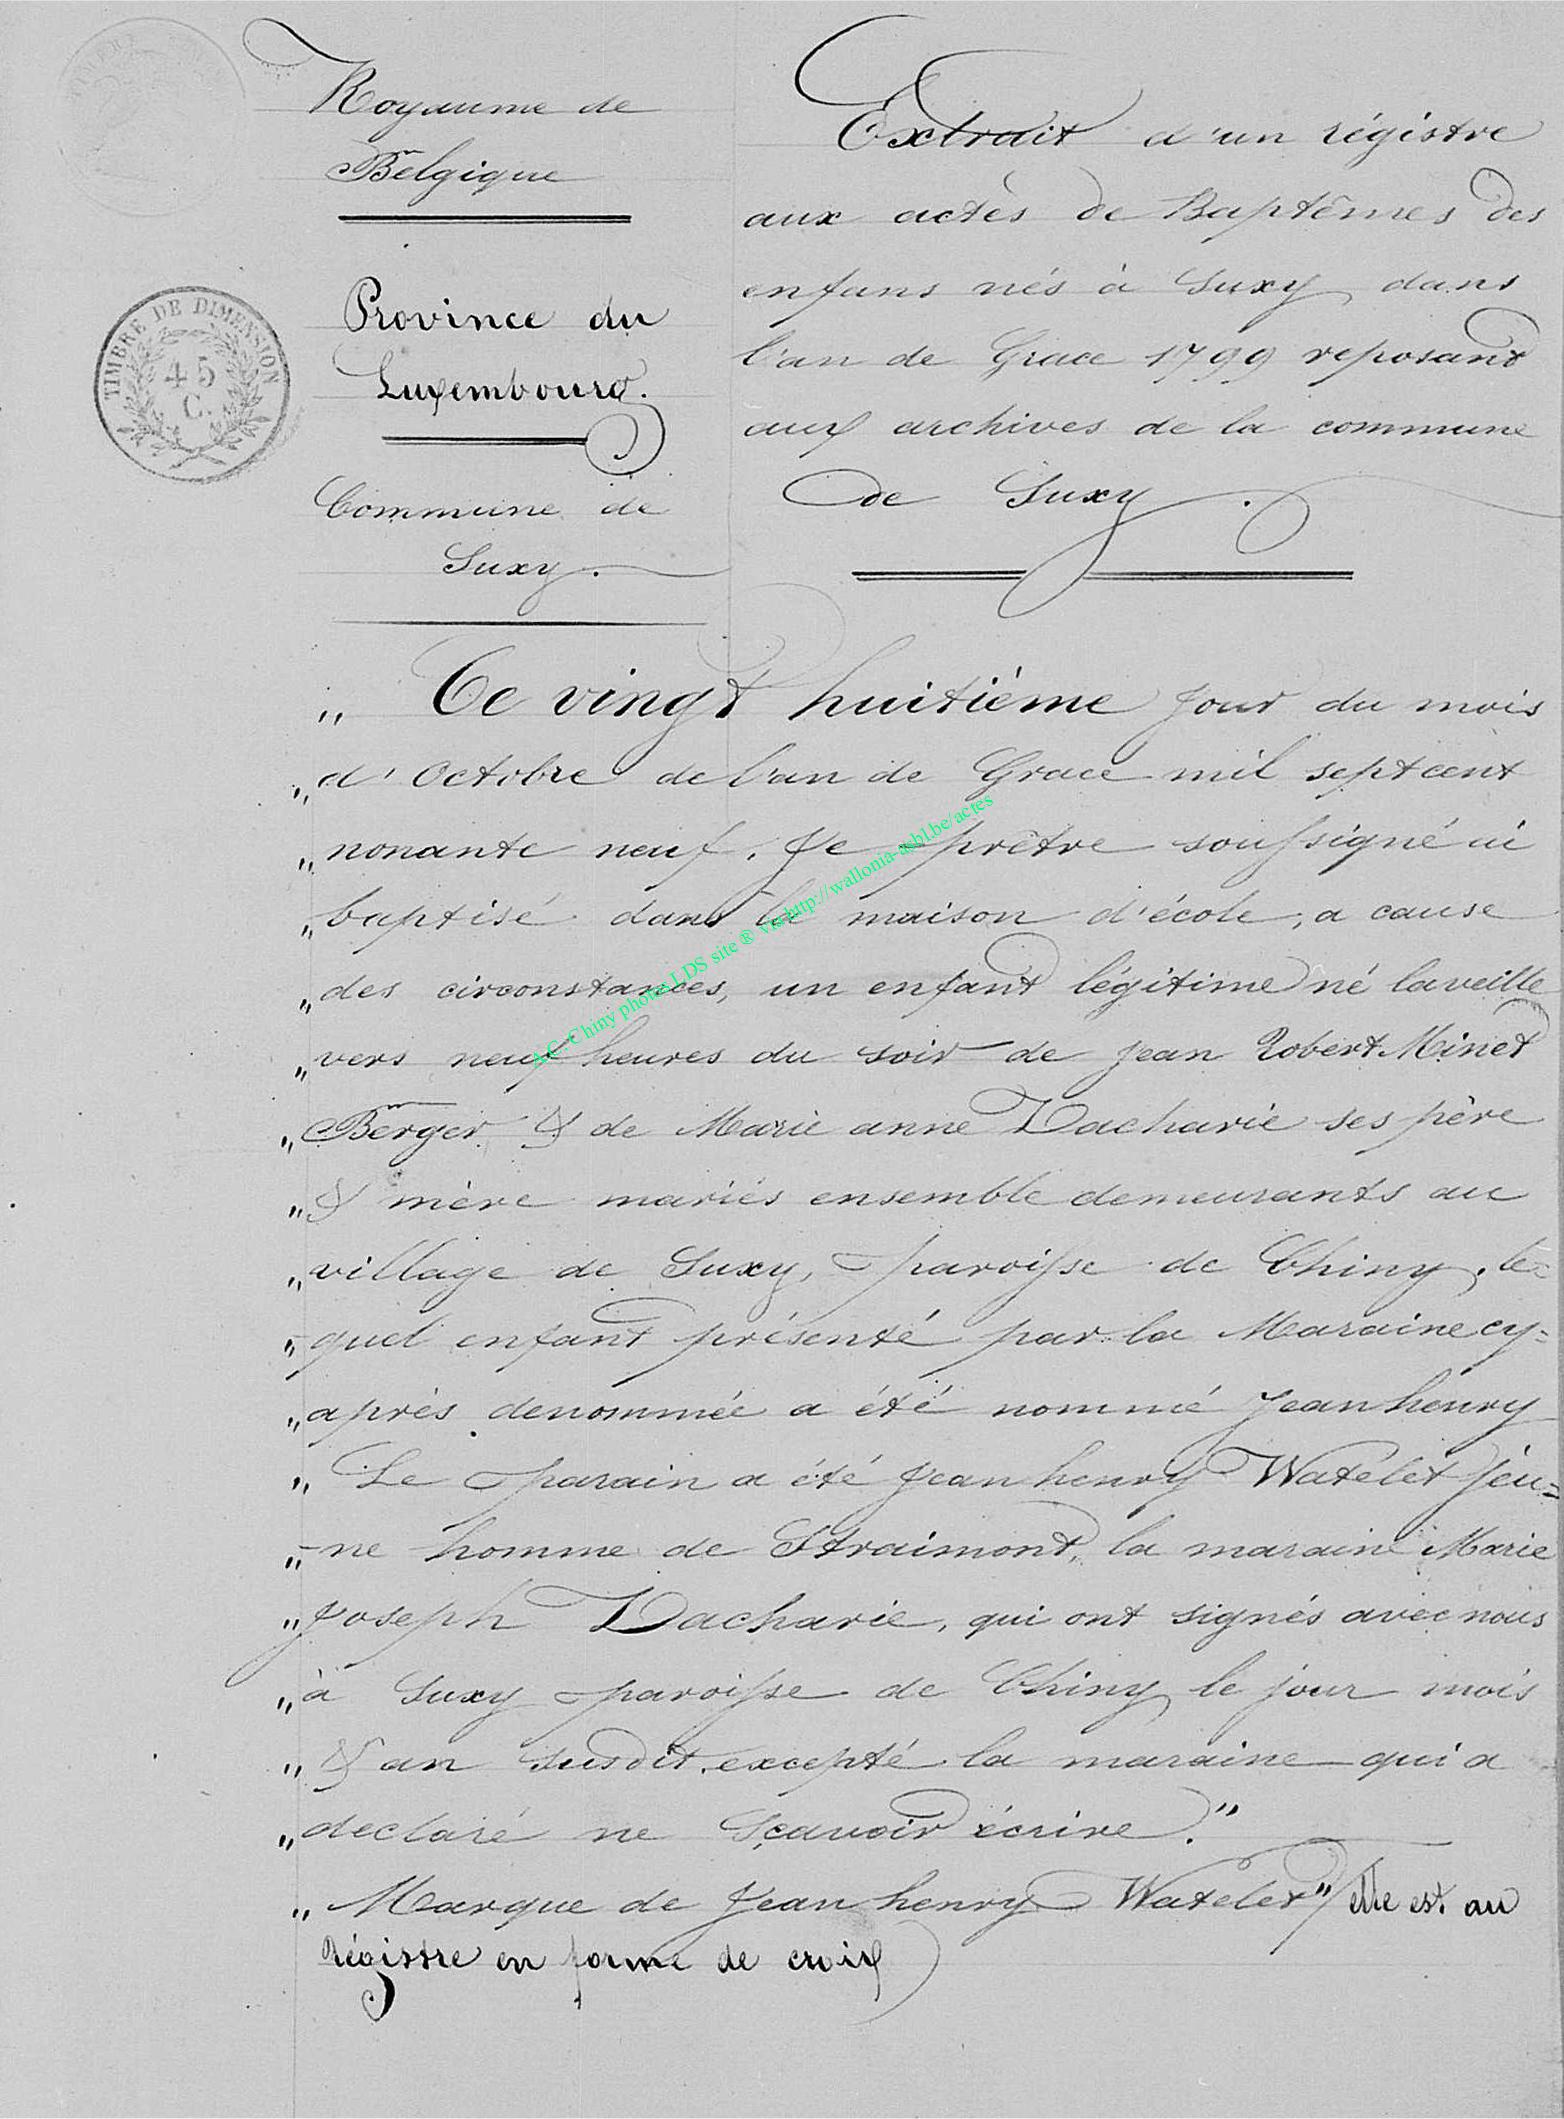 Royaume de
Belgique
TIMBRE DE DIMENSION
45
C.
Province du
Luxembourg.
Commune de
Suxy.
Extrait d'un régistre
aux actes de Baptêmes des
enfans nés à Suxy dans
l'an de Grace 1799 reposant
aux archives de la commune
de Suxy.
„ Ce vingt huitiéme jour du mois
„ d'Octobre de l'an de Grace mil septcent
„ nonante neuf. Je prêtre soussigné ai
„ baptisé dans la maison d'école, a cause
„ des circonstances, un enfant légitime né laveille
„ vers neuf heures du soir de jean Robert Minet
„ Berger & de Marie anne Zacharie ses père
„ & mère mariés ensemble demeurants au
„ village de Suxy, paroisse de Chiny, le=
„ quel enfant présenté par la Maraine cy=
„ après denommée a été nommé Jean henry
„ Le parain a été Jean henry Watelet jeu=
„ ne homme de Straimont, la maraine Marie
„ Joseph Zacharie, qui ont signés avec nous
„ à Suxy paroisse de Chiny le jour mois
„ & an susdit excepté la maraine qui a
„ declaré ne sçavoir écrire."
„ Marque de Jean henry Watelet" (elle est au
Régistre en forme de croix)
A.C. Chiny photos LDS site ® via http://wallonia-asbl.be/actes